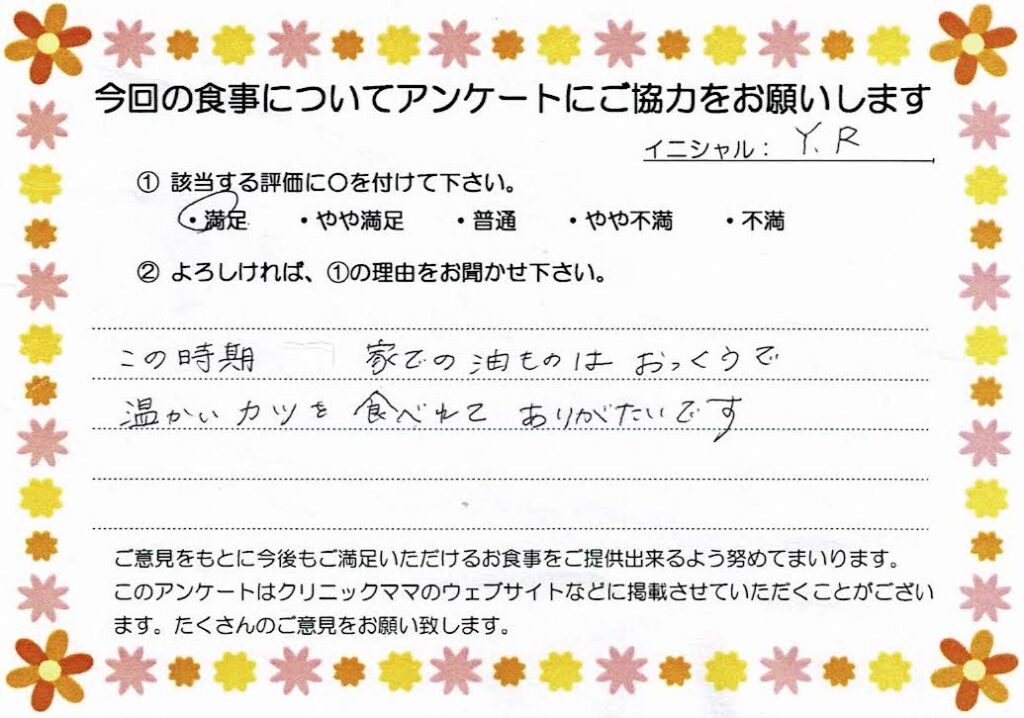 今回の食事についてアンケートにご協力をお願いします
イニシャル： Y.R
① 該当する評価に〇を付けて下さい。
・満足 ・やや満足 ・普通 ・やや不満 ・不満
② よろしければ、①の理由をお聞かせ下さい。
この時期 家での油ものは おっくうで
温かいカツを 食べれて ありがたいです
ご意見をもとに今後もご満足いただけるお食事をご提供出来るよう努めてまいります。
このアンケートはクリニックママのウェブサイトなどに掲載させていただくことがござい
ます。たくさんのご意見をお願い致します。